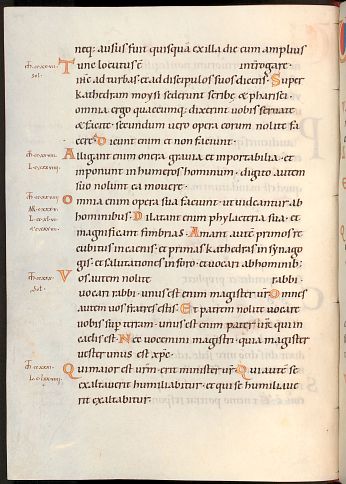 neq; ausus fuit quisquā ex illa die eum amplius
Tunc locutus ē interrogare.
ihc̄ ad turbas. et ad discipulos suos dicens. Super
kathedram moysi sederunt scribę & pharisei.
omnia ergo quaecumq; dixerint uobis seruate
& facite. secundum uero opera eorum nolite fa
cere. Dicunt enim et non faciunt.
Alligant enim onera grauia et inportabilia. et
inponunt in humeros hominum. digito autem
suo nolunt ea mouere.
omnia enim opera sua faciunt. ut uideantur ab
hominibus. Dilatant enim phylacteria sua. et
magnificant fimbrias. Amant autē primos re
cubitus in caenis. et primas kathedras in synago
gis. et salutationes in foro. et uocari ab hominib;
Vos autem nolite rabbi.
uocari rabbi. unus est enim magister ur̄. Omnes
autem uos fratres estis. Et patrem nolite uocare
uobis sup terram. unus est enim pater ur̄. qui in
caelis est. Nec uocemini magistri. quia magister
uester unus est xp̄c.
Qui maior est ur̄m. erit minister ur̄. Qui autē se
exaltauerit humiliabitur. et qui se humiliaue
rit exaltabitur.